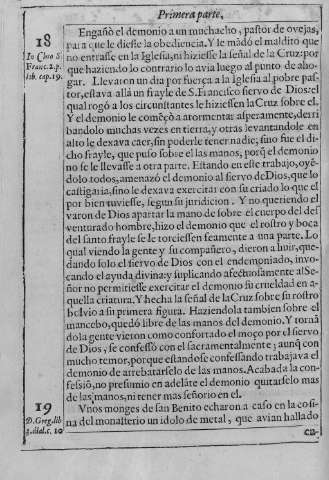 Primera parte,
18
In Chro S.
Franc. 2. p.
lib. cap. 19.
Engañò el demonio a un muchacho, pastor de ovejas,
para que le diesse la obediencia. Y le mãdó el maldito que
no entrasse en la Iglesia, ni hiziesse la señal de la Cruz: por
que haziendo lo contrario lo avia luego al punto de ahogar.
Llevaron un dia por fuerça a la Iglesia al pobre pas-
tor, estava allâ un frayle de S. Francisco siervo de Dios: el
qual rogó a los circunstantes le hiziessen la Cruz sobre el.
Y el demonio le comẽçò a atormentar asperamente, derri
bandolo muchas vezes en tierra, y otras levantandole en
alto le dexava caer, sin poderle tener nadie, sino fue el di-
cho frayle, que puso sobre el las manos, porq̃ el demonio
no se le llevasse a otra parte. Estando en este trabajo, oyẽ-
dolo todos, amenazó el demonio al siervo de Dios, que lo
castigaria, sino le dexava exercitar con su criado lo que el
por bien tuviesse, segun su juridicion. Y no queriendo el
varon de Dios apartar la mano de sobre el cuerpo del des
venturado hombre, hizo el demonio que el rostro y boca
del santo frayle se le torciessen feamente a una parte. Lo
qual viendo la gente y su compañero, dieron a huir, que-
dando solo el siervo de Dios con el endemoniado, invo-
cando el ayuda divina: y suplicando afectuosamente al Se-
ñor no permitiesse exercitar el demonio su crueldad en a-
quella criatura. Y hecha la señal de la Cruz sobre su rostro
bolvio a su primera figura. Haziendola tambien sobre el
mancebo, quedó libre de las manos del demonio. Y torna
do la gente vieron como confortado el moço por el siervo
de Dios, se confessó con el sacramentalmente; aunq̃ con
mucho temor, porque estandose confessando trabajava el
demonio de arrebatarselo de las manos. Acabada la con-
fessió, no presumio en adelãte el demonio quitarselo mas
de las manos, ni tener mas señorio en el.
19
D. Greg. lib
2. dial. c. 10
Vnos monges de san Benito echaron a caso en la cosi-
na del monasterio un idolo de metal, que avian hallado
en-